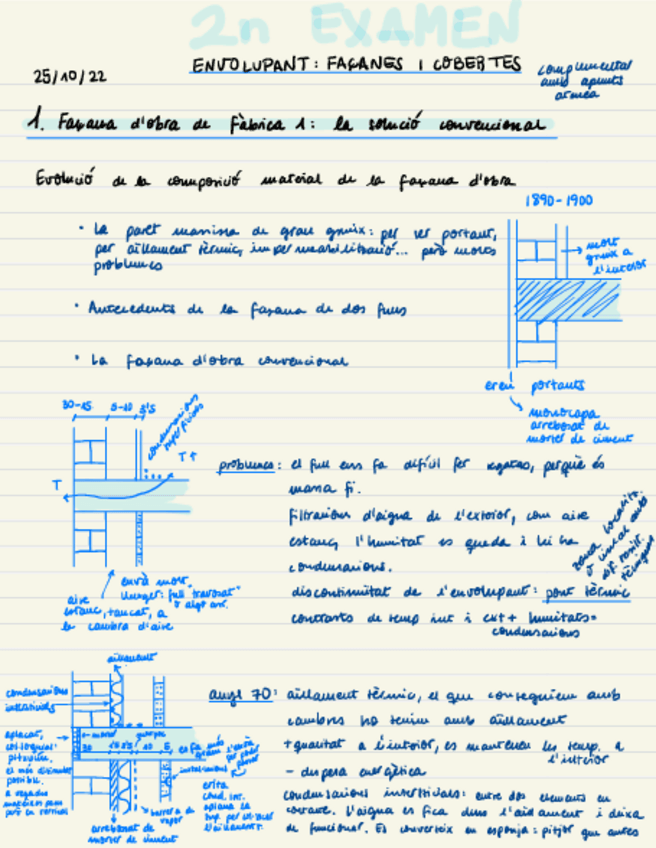 2n EXAMEN
ENVOLUPANT: FAÇANES I COBERTES
25/10/22
complementar
amb apunts
1. Façana d'obra de Fàbrica 1: la solució convencional
Evolució de la composició material de la façana d'obra
1890-1900
· La paret massissa de gran gruix: per ser portant,
per aïllament tèrmic, impermeabilització... però molts
problemes
gruix a
l'interior
· Antecedents de la façana de dos fulls
· La façana d'obra convencional
eren portants
monocapa
arrebossat de
morter de ciment
30-15 5-10
condensacions
superficials
T
problemes: el full ens fa difícil fer regates, perquè és
massa fi.
Filtracions d'aigua de l'exterior, com aire
estanc, l'humitat es queda i hi ha
condensacions.
discontinuïtat de l'envolupant: pont tèrmic
contrasts de temp int i ext + humitats =
condensacions
aire
estanc, tancat, a
la cambra d'aire
aïllament
condensacions
intersticials
anys 70: aïllament tèrmic, el que conseguiem amb
cambres ho tenim amb aïllament
+ qualitat a l'interior, es mantenen les temp. a
l'interior
- despesa energètica
condensacions intersticials: entre dos elements en
contacte. L'aigua es fica dins l'aïllament i deixa
de funcionar. Es converteix en esponja: pitjor que abans
aplacat,
possible.
barrera de
vapor
arrebossat de
morter de ciment
l'aïllament.